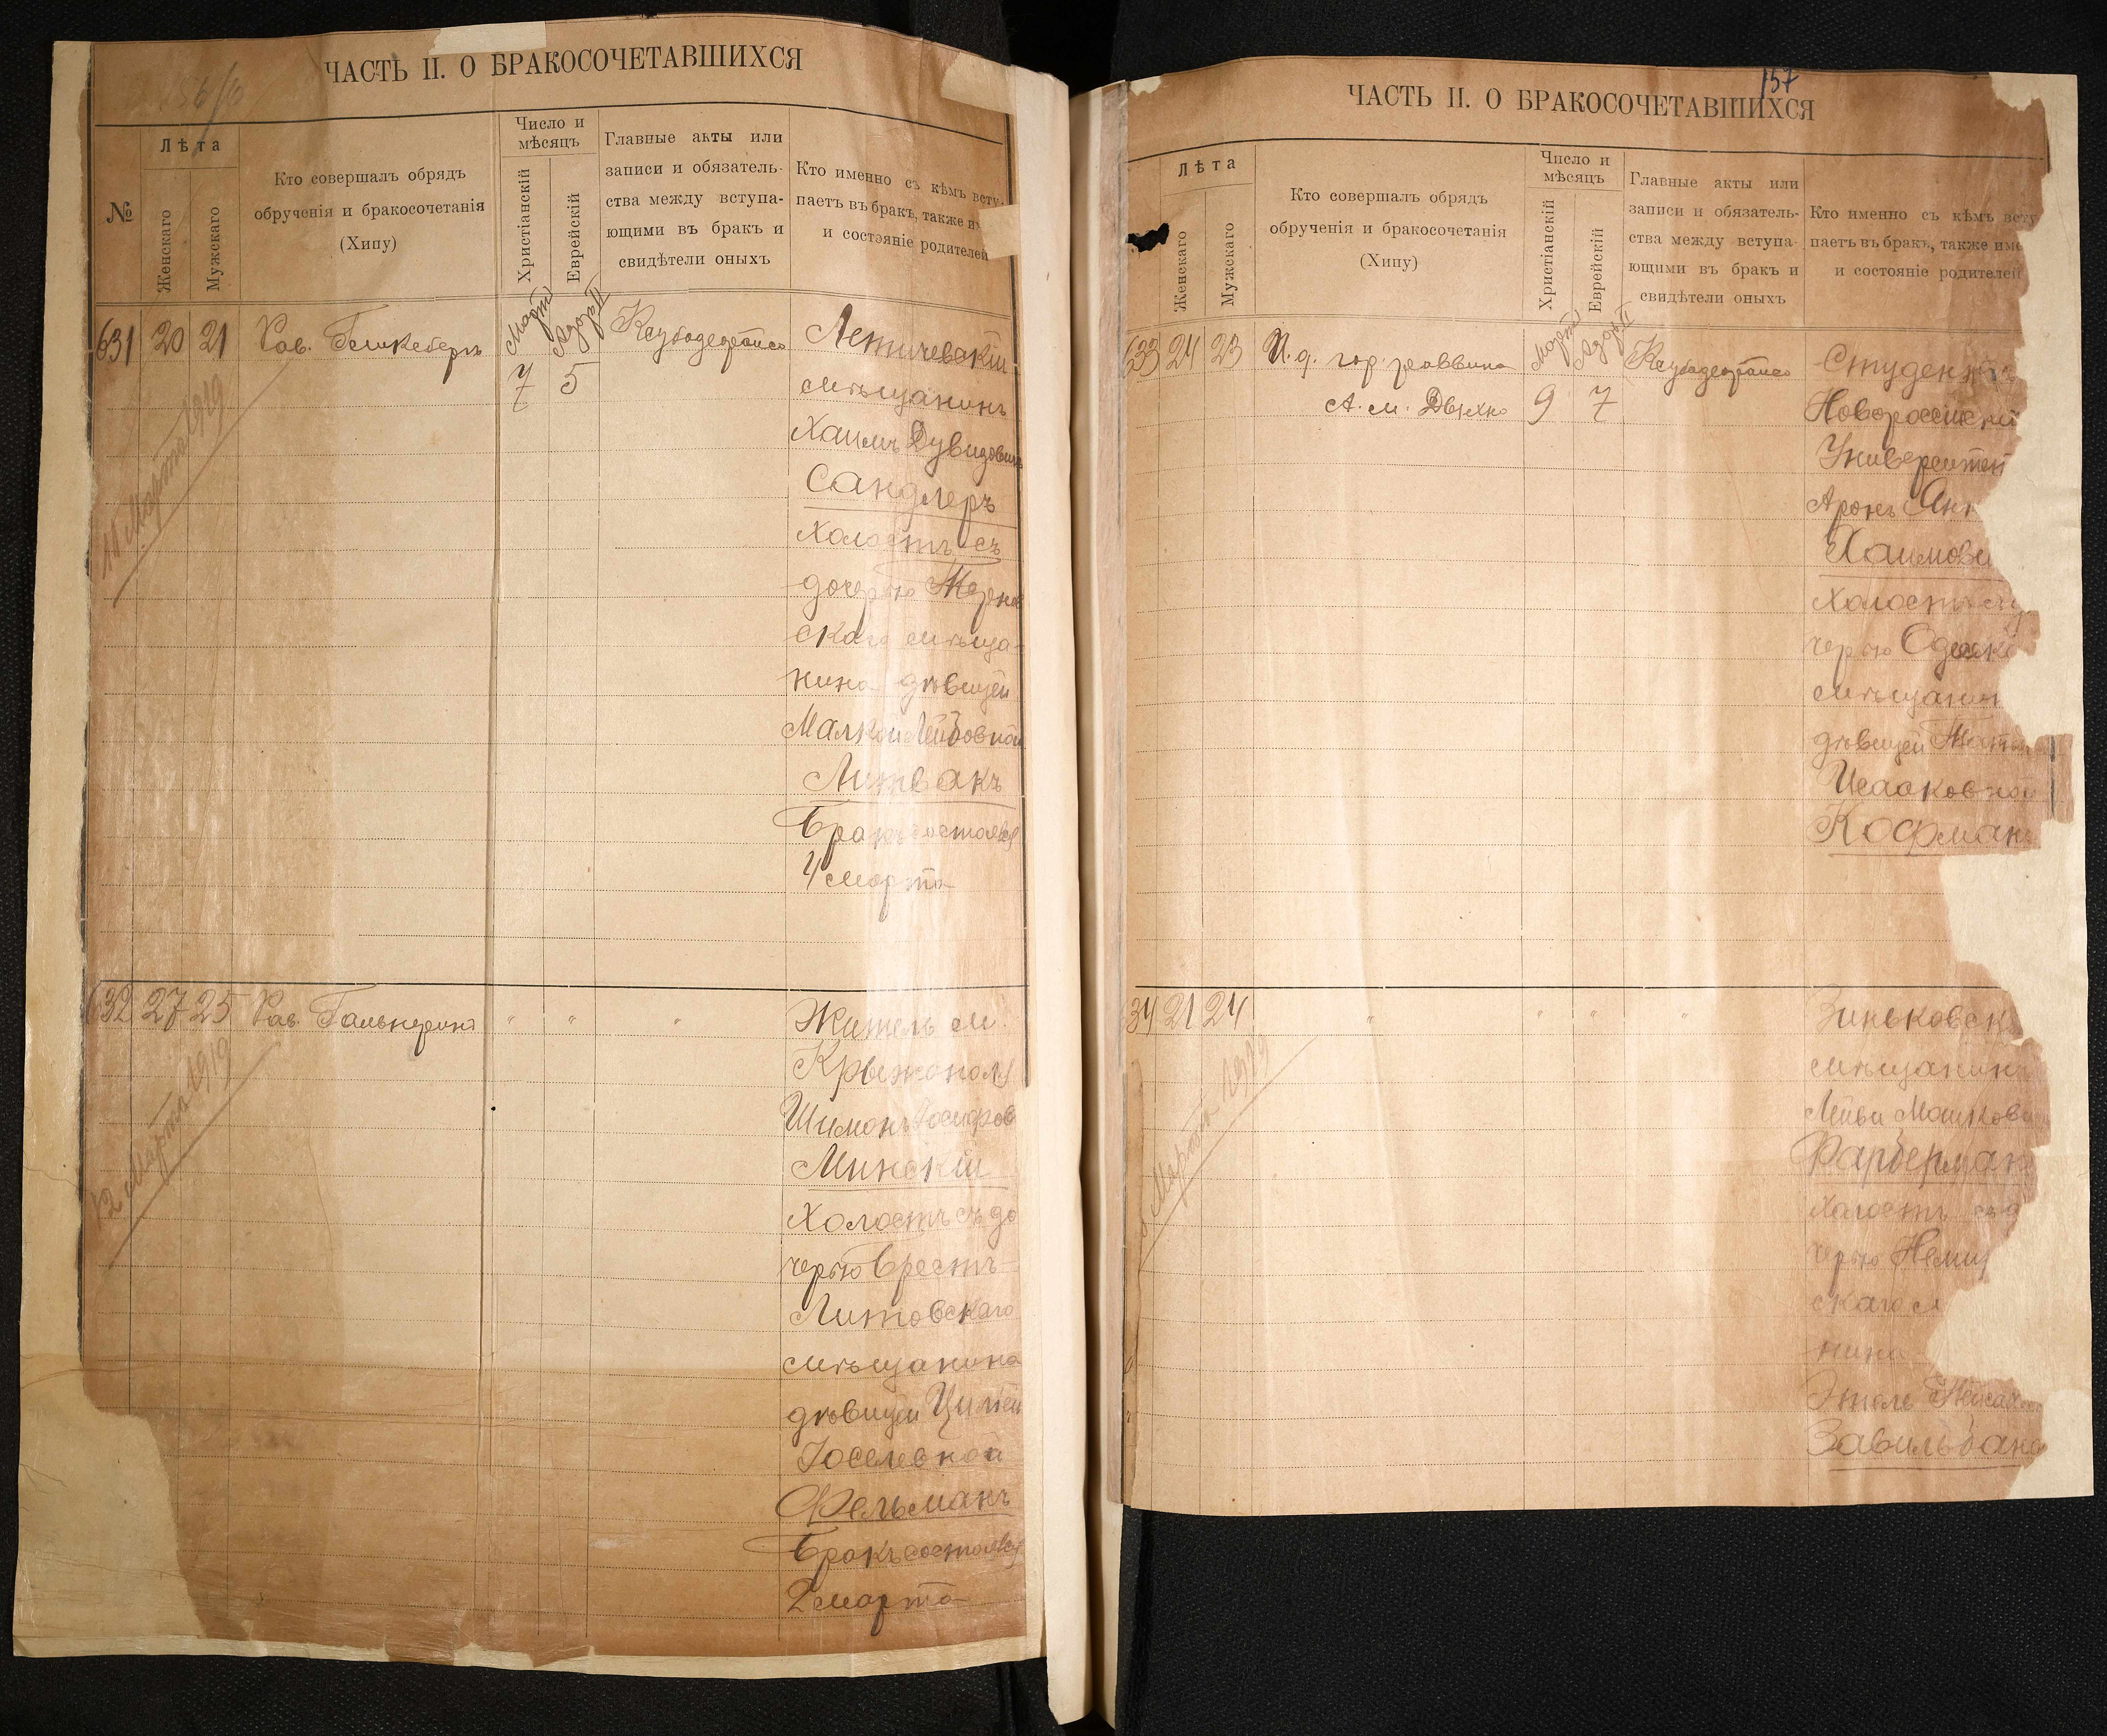 ЧАСТЬ II. О БРАКОСОЧЕТАВШИХСЯ
№
Лѣта
Женскаго
Мужскаго
Кто совершалъ обрядъ
обрученія и бракосочетанія
(Хипу)
Число и
мѣсяцъ
Христіанскій
Еврейскій
Главные акты или
записи и обязатель-
ства между вступа-
ющими въ бракъ и
свидѣтели оныхъ
Кто именно съ кѣмъ всту-
паетъ въ бракъ, также и
и состояніе родителей
631 20 21 Рав.
Мартъ
Адаръ II
7 5
Летичевскій
мѣщанинъ
Хаимъ Дувидович
Сандлеръ
холостъ съ
дочерью
скаго мѣща-
нина дѣвицей
Малкой Лейбовной
Литвакъ
Бракъ состоялся
4 марта
11 Марта 1919
632 27 25 Рав. Гальперинъ " " "
Житель м.
Крыжополя
Шимонъ Іосифов
Минскій
холостъ съ до
черью Брестъ-
Литовскаго
мѣщанина
дѣвицей
Іоселевной
Фельманъ
Бракъ состоялся
2 марта
12 Марта 1919
157
ЧАСТЬ II. О БРАКОСОЧЕТАВШИХСЯ
Лѣта
Женскаго
Мужскаго
Кто совершалъ обрядъ
обрученія и бракосочетанія
(Хипу)
Число и
мѣсяцъ
Христіанскій
Еврейскій
Главные акты или
записи и обязатель-
ства между вступа-
ющими въ бракъ и
свидѣтели оныхъ
Кто именно съ кѣмъ всту
паетъ въ бракъ, также име
и состояніе родителей
633 24 23 И. д. гор. раввина
А. М.
Мартъ
Адаръ II
9 7
Студентъ
Новороссійскі
Университет
Аронъ
Хаимови
холостъ
черью Одесск
мѣщанин
дѣвицей
Исааковной
Кофманъ
34 21 24 " " " "
Зиньковск
мѣщанинъ
Лейви Мошкови
Фарберман
холостъ съ д
черью Неми
скаго м
нина
Этлє
Завильбанс
Марта 1919